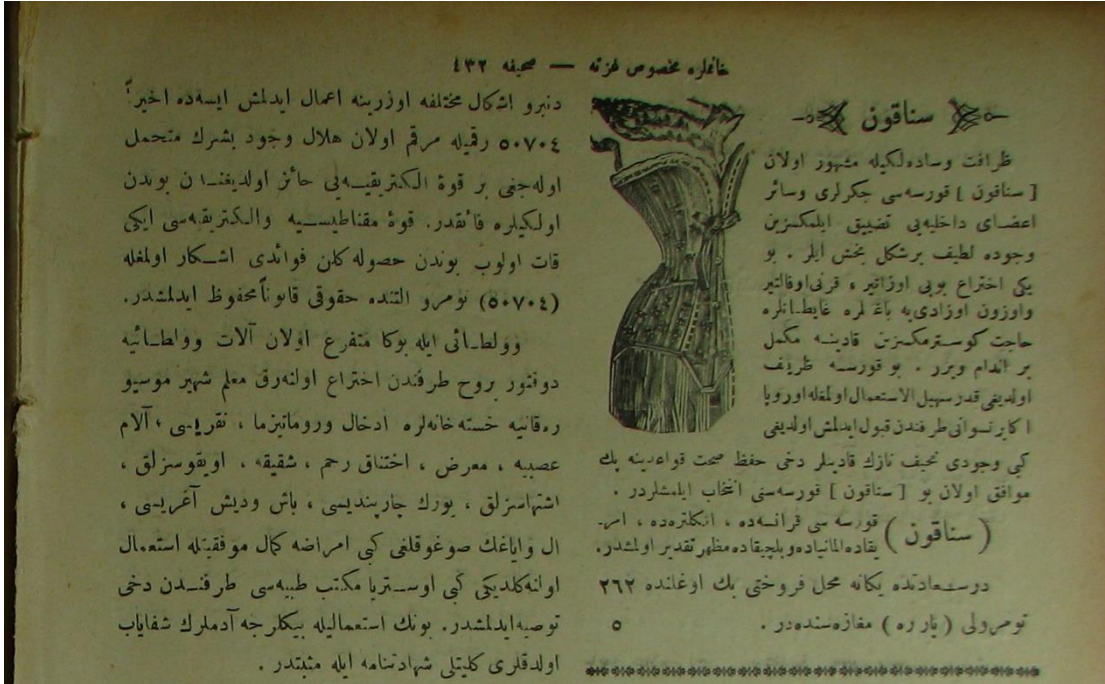 خانملره مخصوص غزته — صحیفه ٤٣٢
سناقون
ظرافت وساده‌لکیله مشهور اولان
[ سناقون ] قورسه‌سی جکرلری وسائر
اعضای داخلیه‌یی تضییق ایلمکسزین
وجوده لطیف برشکل بخش ایلر . بو
یکی اختراع بویی اوزاتیر ، قرنی اوفالتیر
واوزون اوزادی‌یه باغ لره غایطانلره
حاجت کوسترمکسزین قادینه مکمل
بر اندام ویرر . بو قورسه ظریف
اولدیغی قدر سهیل الاستعمال اولمغله اوروپا
اکابر نسوانی طرفندن قبول ایدلمش اولدیغی
کبی وجودی نحیف نازك قادینلر دخی حفظ صحت قواعدینه پك
موافق اولان بو [ سناقون ] قورسه‌سنی انتخاب ایلمشلردر .
( سناقون ) قورسه سی فرانسه‌ده ، انکلتره‌ده ، امر-
یقاده المانیاده وبلچیقاده مظهر تقدیر اولمشدر.
درسعادتده یکانه محل فروختی بك اوغلنده ٢٦٢
نومرولی ( پار ره ) مغازه‌سنده‌در . ٥
دنبرو اشکال مختلفه اوزرینه اعمال ایدلمش ایسه‌ده اخیراً
٥٠٧٠٤ رقمیله مرقم اولان هلال وجود بشرك متحمل
اوله‌جغی بر قوۀ الکتریقیه‌یی حائز اولدیغندن بوندن
اولکیلره فائقدر. قوۀ مقناطیسیه والکتریقیه‌سی ایکی
قات اولوب بوندن حصوله کلن فوائدی اشکار اولمغله
(٥٠٧٠٤) نومرو التنده حقوقی قانوناً محفوظ ایدلمشدر.
وولطائی ایله بوکا متفرع اولان آلات وولطائیه
دوقتور بروح طرفندن اختراع اولنه‌رق معلم شهیر موسیو
خسته خانه‌لره ادخال وروماتیزما ، نقریس ، آلام
عصبیه ، معرض ، اختناق رحم ، شقیقه ، اویقوسزلق ،
اشتهاسزلق ، یورك چارپندیسی ، باش ودیش آغریسی ،
ال وایاغك صوغوقلغی کبی امراضه کمال موفقیتله استعمال
اولنه‌کلدیکی کبی اوستریا مکتب طبیه‌سی طرفندن دخی
توصیه ایدلمشدر. بونك استعمالیله بیکلرجه آدملرك شفایاب
اولدقلری کلیتلی شهادتنامه ایله مثبتدر .